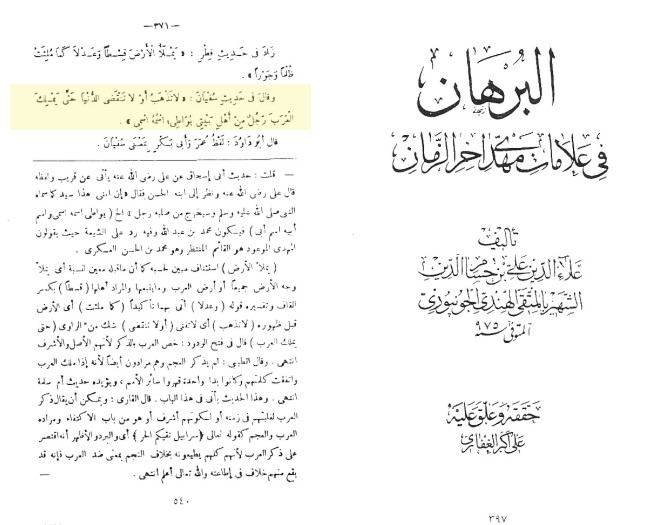 البرهان
في علامات مهدي آخر الزمان
تأليف
علاء الدين علي بن حسام الدين
الشهير بالمتقي الهندي الجونبوري
المتوفى ٩٧٥
حققه وعلق عليه
علي أكبر الغفاري
٣٩٧
—٣٧١—
زَادَ فى حَدِيثِ فِطْرٍ : « يَمْلَأُ الْأَرْضَ قِسْطاً وَعَدْلاً كَمَا مُلِئَتْ
ظُلْماً وَجَوْراً » .
وقالَ فى حَدِيثِ سُفْيَانَ : « لاَتَذْهَبُ أوْ لاَ تَنْقَضِى الدُّنْيَا حَتَّى يَمْلِكَ
الْعَرَبَ رَجُلٌ مِنْ أَهْلِ بَيْتِى يُوَاطِىءُ اسْمُهُ اسْمِى » .
قال أبُو دَاوُدَ : لَفْظُ عُمَرَ وَأبى بَكْرٍ بِمَعْنَى سُفْيَانَ .
— قلت : حديث أبى إسحاق عن على رضى الله عنه يأتى عن قريب ولفظه
قال على رضى الله عنه ونظر إلى ابنه الحسن فقال «إن ابنى هذا سيد كما سماه
النبى صلى الله عليه وسلم وسيخرج من صلبه رجل » الخ ( يواطى اسمه اسمى واسم
أبيه اسم أبى ) فيكون محمد بن عبد الله وفيه رد على الشيعة حيث يقولون
المهدى الموعود هو القائم المنتظر وهو محمد بن الحسن العسكرى .
( يملأ الأرض ) استئناف مبين لحسبه كما أن ماقبله معين لنسبه أى يملأ
وجه الأرض جميعاً أو أرض العرب وما يتبعها والمراد أهلها ( قسطاً ) بكسر
القاف وتفسيره قوله ( وعدلا ) أتى بهما تأكيداً ( كما ملئت ) أى الأرض
قبل ظهوره ( لاتذهب ) أى لاتفنى ( أو لا تنقضى ) شك من الراوى ( حتى
يملك العرب ) قال فى فتح الودود : خص العرب بالذكر لأنهم الأصل والأشرف
انتهى . وقال الطيبى : لم يذكر العجم وهم مرادون أيضاً لأنه إذا ملك العرب
واتفقت كلمتهم وكانوا يدا واحدة قهروا سائر الأمم ، ويؤيده حديث أم سلمة
انتهى . وهذا الحديث يأتى فى هذا الباب . قال القارى : ويمكن أن يقال ذكر
العرب لغلبتهم فى زمنه أو لكونهم أشرف أو هو من باب الاكتفاء ومراده
العرب والعجم كقوله تعالى ( سرابيل تقيكم الحر ) أى والبرد والأظهر أنه اقتصر
على ذكر العرب لأنهم كلهم يطيعونه بخلاف العجم بمعنى ضد العرب فإنه قد
يقع منهم خلاف فى إطاعته والله تعالى أعلم انتهى . —
٥٤٠